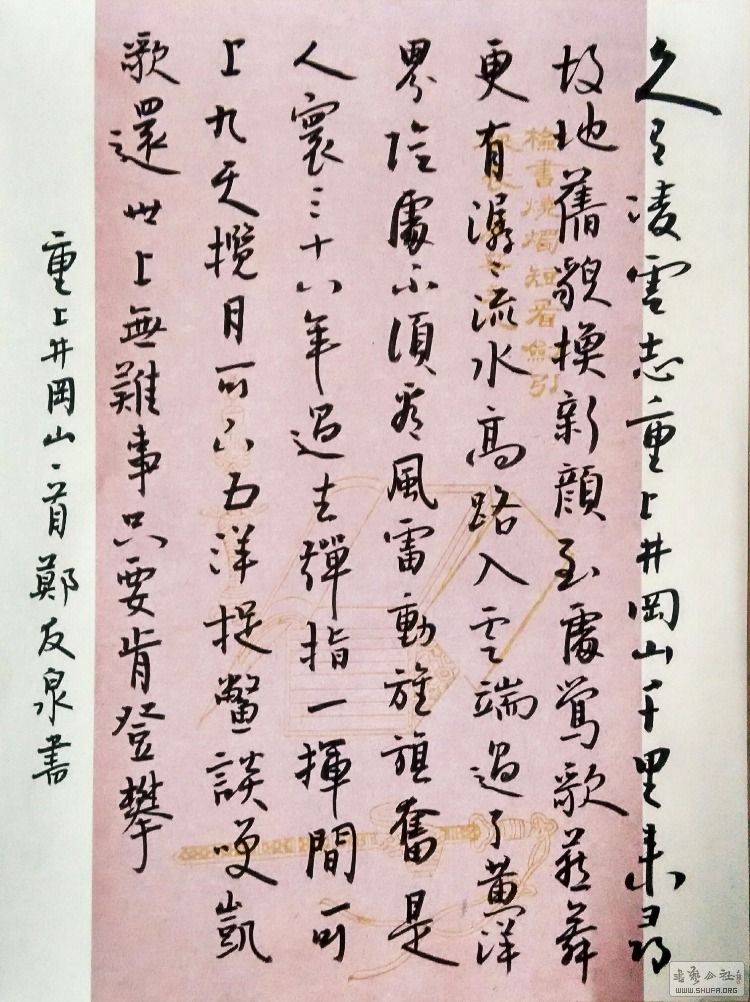 久有凌雲志重上井岡山千里来尋
故地舊貌換新顔到處鶯歌燕舞
更有潺〻流水高路入雲端過了黄洋
界險處不須看風雷動旌旗奮是
人寰三十八年過去彈指一揮間可
上九天攬月可下五洋捉鱉談笑凱
歌還世上無難事只要肯登攀
重上井岡山一首鄭友泉書
書燒燭短看劍引
WWW.SHUFA.ORG